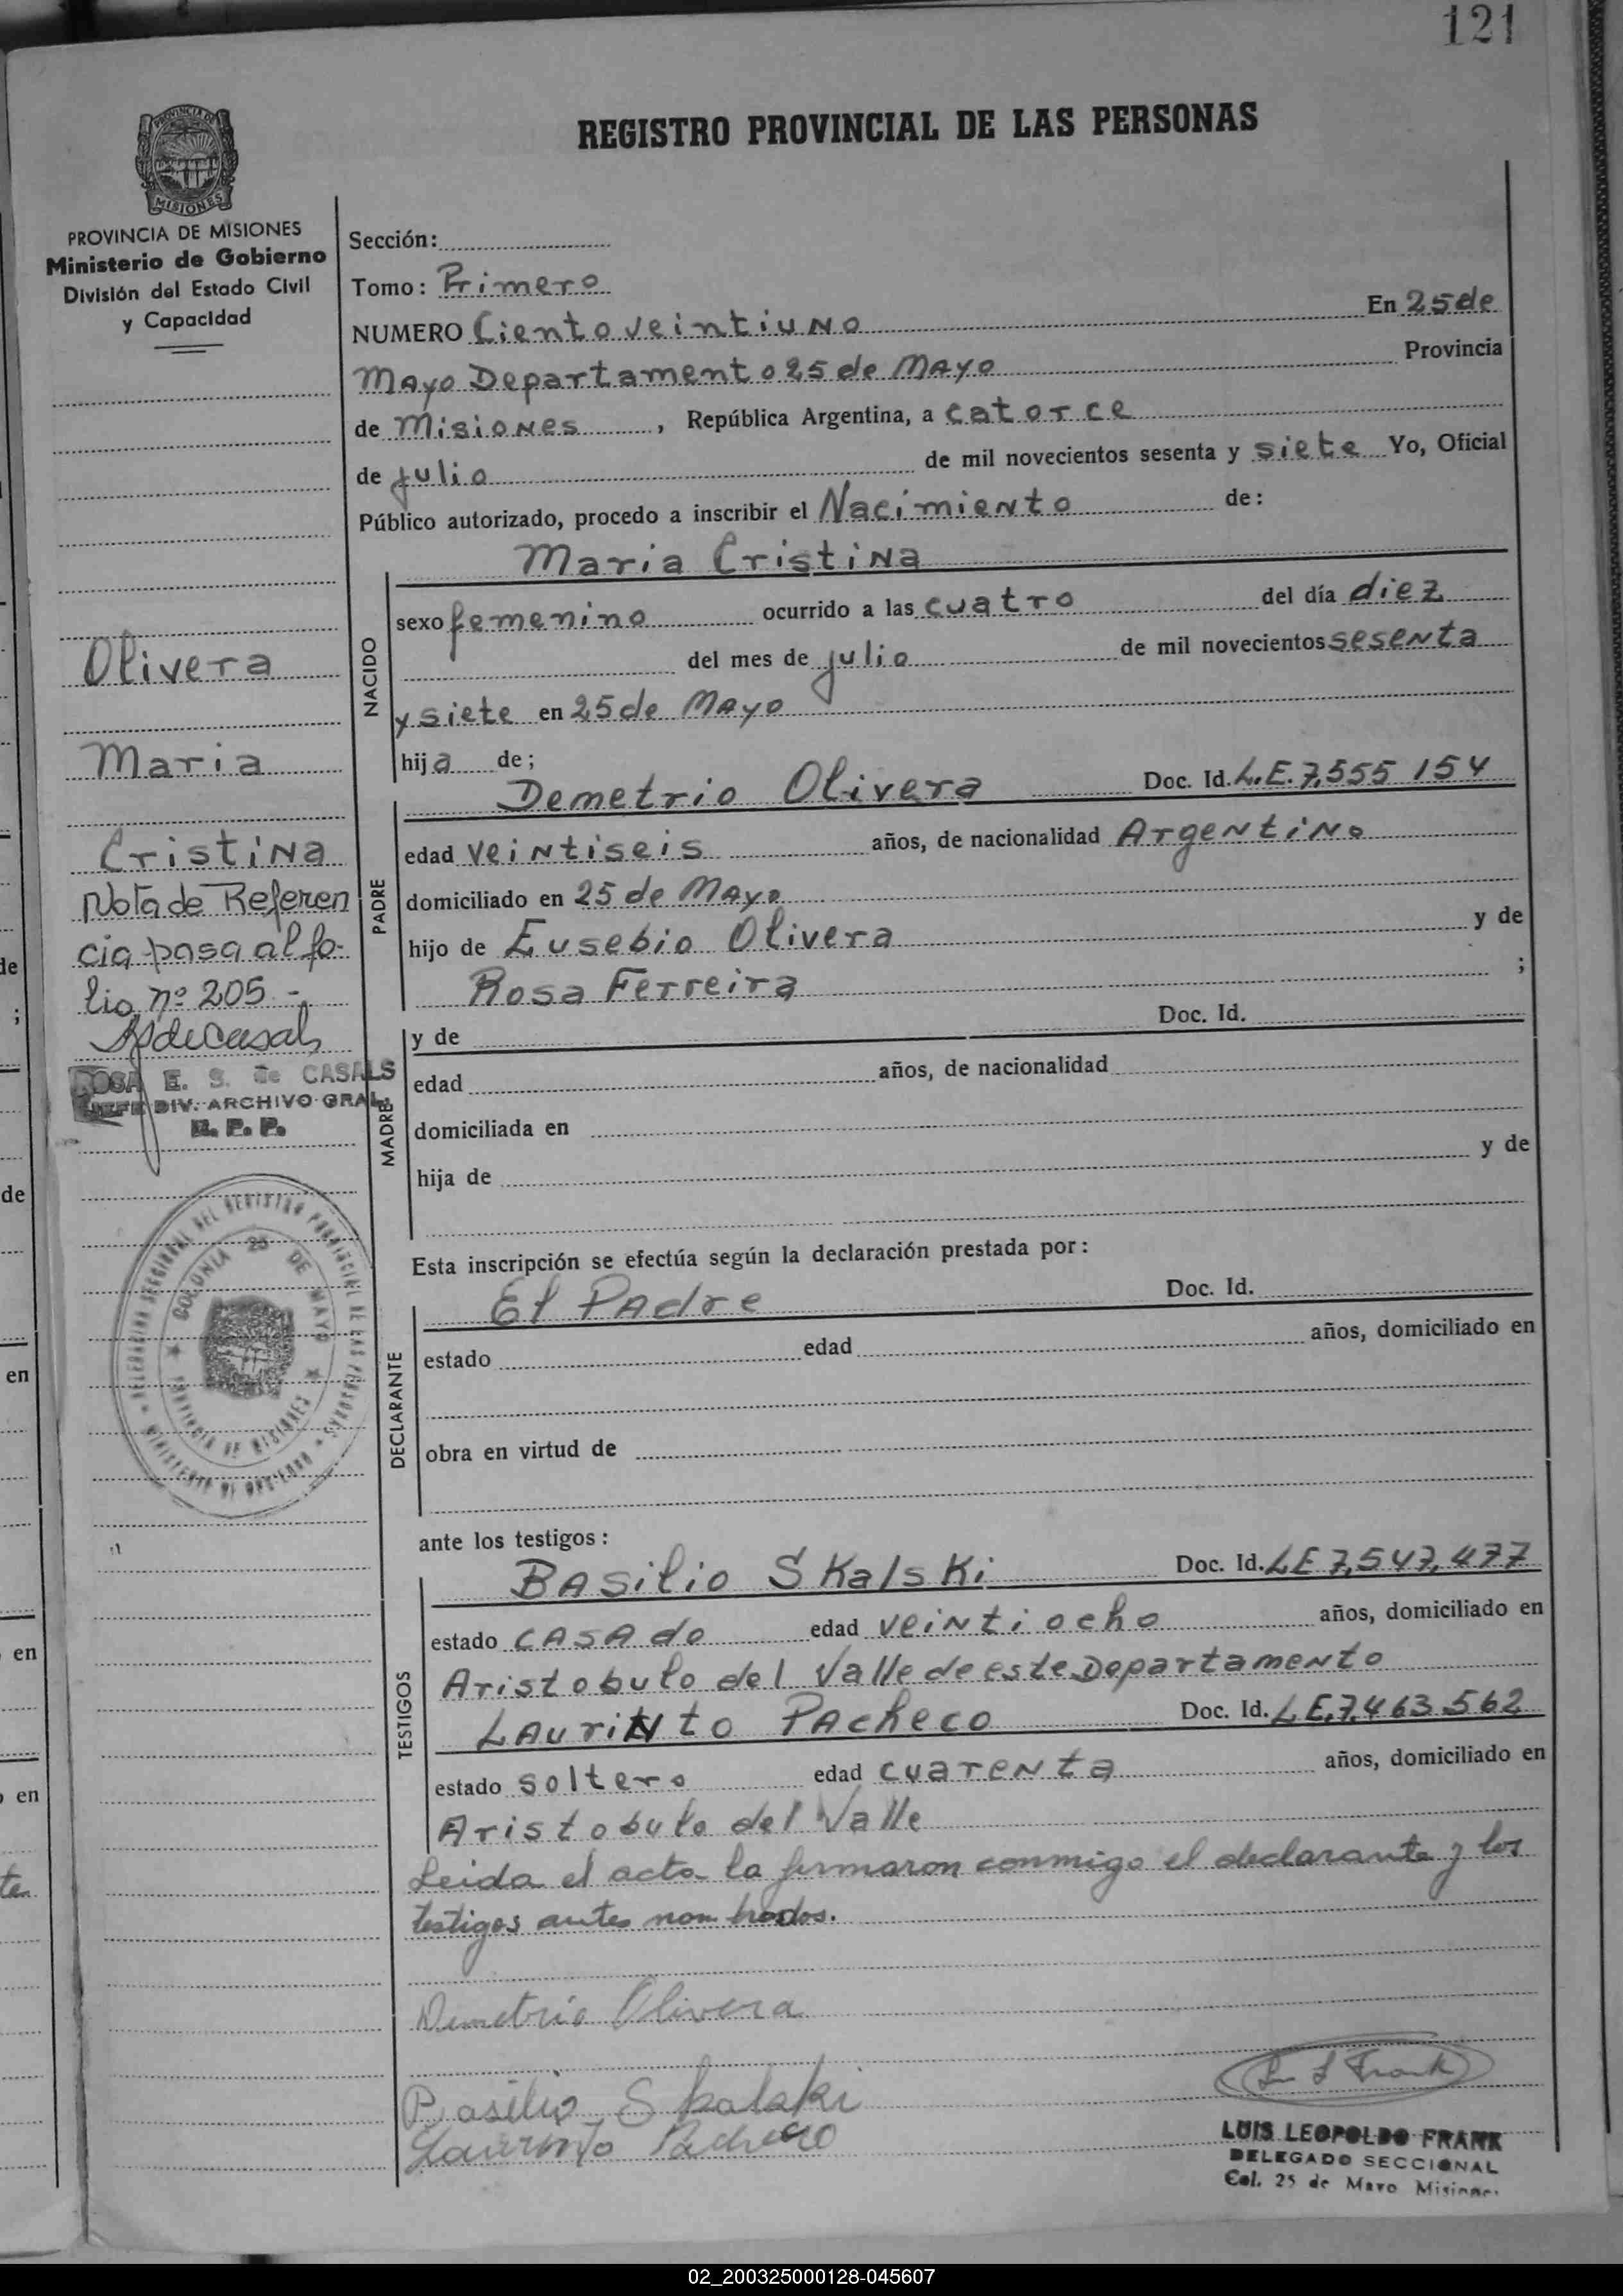 121
REGISTRO PROVINCIAL DE LAS PERSONAS
PROVINCIA DE MISIONES
MISIONES
PROVINCIA DE MISIONES
Ministerio de Gobierno
División del Estado Civil
y Capacidad
Olivera
Maria
Cristina
Nota de Referen
cia pasa al fo-
lio nº 205.-
ROSA E. S. de CASALS
JEFE DIV. ARCHIVO GRAL.
R. P. P.
DELEGACION SECCIONAL DEL REGISTRO PROVINCIAL DE LAS PERSONAS
MINISTERIO DE GOBIERNO
COLONIA 25 DE MAYO
PROVINCIA DE MISIONES
Sección:
Tomo: Primero
NUMERO Ciento veintiuno En 25 de
Mayo Departamento 25 de Mayo Provincia
de Misiones, República Argentina, a catorce
de julio de mil novecientos sesenta y siete Yo, Oficial
Público autorizado, procedo a inscribir el Nacimiento de:
NACIDO
Maria Cristina
sexo femenino ocurrido a las cuatro del día diez
del mes de julio de mil novecientos sesenta
y siete en 25 de Mayo
hija de;
PADRE
Demetrio Olivera Doc. Id. L.E. 7,555 154
edad veintiseis años, de nacionalidad Argentino
domiciliado en 25 de Mayo
hijo de Eusebio Olivera y de
Rosa Ferreira ;
MADRE
y de Doc. Id.
edad años, de nacionalidad
domiciliada en
hija de y de
Esta inscripción se efectúa según la declaración prestada por:
DECLARANTE
El Padre Doc. Id.
estado edad años, domiciliado en
obra en virtud de
ante los testigos:
TESTIGOS
Basilio Skalski Doc. Id. LE 7,547,477
estado casado edad veintiocho años, domiciliado en
Aristobulo del Valle de este Departamento
Laurinto Pacheco Doc. Id. LE.7.463.562
estado soltero edad cuarenta años, domiciliado en
Aristobulo del Valle
Leida el acta la firmaron conmigo el declarante y los
testigos antes nombrados.
Demetrio Olivera
Basilio Skalski
Laurinto Pacheco
L L Frank
LUIS LEOPOLDO FRANK
DELEGADO SECCIONAL
Col. 25 de Mayo Misiones
02_200325000128-045607